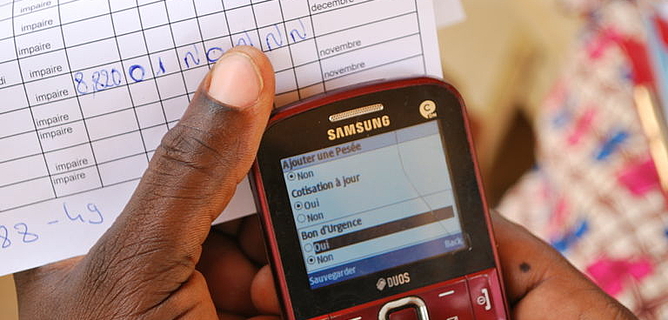 impaire
décembre
impaire
impaire
impaire
8,820 01 N O N N
novembre
impaire
impaire
impaire
novembre
impaire
impaire
88-49
SAMSUNG
Ajouter une Pesée
Non
Cotisation à jour
Oui
Non
Bon d'Urgence
Oui
Non
Sauvegarder Back
DUOS